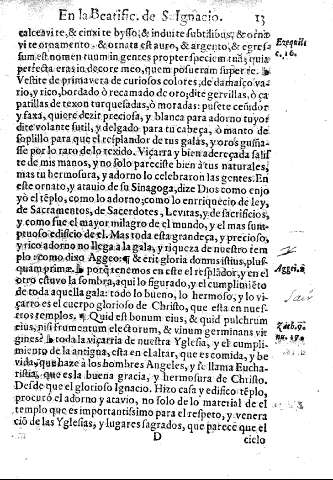 En la Beatific. de S. Ignacio. 13
calceavi te, & cinxi te bysso, & indui te subtilibus, & ornavi
te ornamento, & ornata est auro, & argento, & egressum
est nomen tuum in gentes propter speciem tuã, quia
perfecta eras in decore meo, quem posueram super te.
Vestite de primavera de curiosos colores, de damasco vario,
y rico, bordado ò recamado de oro; dite gervillas, ò çapatillas
de texon turquesadas, ò moradas: pusete ceñidor
y faxa, quiere dezir preciosa, y blanca para adorno tuyo:
dite volante sutil, y delgado para tu cabeça, ò manto de
soplillo para que el resplandor de tus galas, y oros
por lo raro de lo texido. Viçarra y bien adereçada saliste
de mis manos, y no solo pareciste bien à tus naturales,
mas tu hermosura, y adorno lo celebraron las gentes. En
este ornato, y atavio de su Sinagoga, dize Dios como enjoyò
el tẽplo, como lo adorno; como lo enrriqueciò de ley,
de Sacramentos, de Sacerdotes, Levitas, y de sacrificios,
y como fue el mayor milagro de el mundo, y el mas sumptuoso
edificio de el. Mas toda esta grandeça, y precioso,
y rico adorno no llega a la gala, y riqueza de nuestro templo
como dixo Aggeo: & erit gloria domus istius, plusquam
primæ. porq̃ tenemos en este el resplãdor, y en el
otro estuvo la sombra, aqui lo figurado, y el cumplimiẽto
de toda aquella gala: todo lo bueno, lo hermoso, y lo viçarro
es el cuerpo glorioso de Christo, que esta en nuestros
templos. Quid est bonum eius, & quid pulchrum
eius, nisi frumentum electorum, & vinum germinans virgines?
toda la viçarria de nuestra Yglesia, y el cumplimiento
de la antigua, esta en el altar, que es comida, y bevida,
que haze a los hombres Angeles, y se llama Eucharistia,
que es la buena gracia, y hermosura de Christo.
Desde que el glorioso Ignacio. Hizo casa y edificò tẽplo,
procurò el adorno y atavio, no solo de lo material de el
templo que es importantissimo para el respeto, y veneraciõ
de las Yglesias, y lugares sagrados, que parece que el
D ciclo
Ezequiel.
c. 16.
Aggei. 2
Zach. 9.
nu. 17.